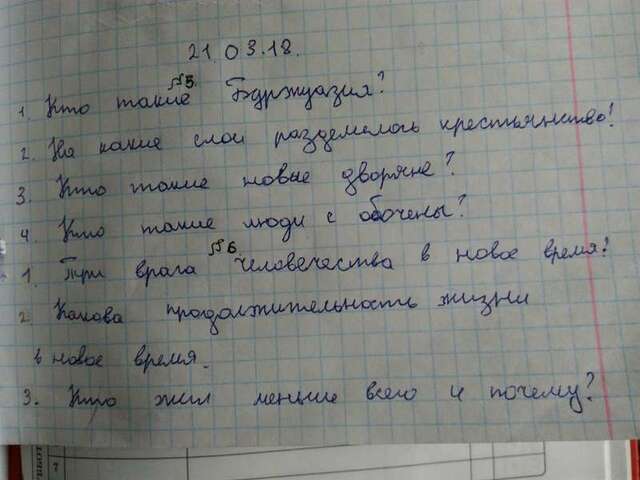 21.03.18.
п 5.
1. Кто такие Буржуазия?
2. На какие слои разделелось крестьянство!
3. Кто такие новые дворяне?
4. Кто такие люди с обочены?
п 6.
1. Три врага человечества в новое время?
2. Какова продолжительность жизни
в новое время.
3. Кто жил меньше всего и почему?